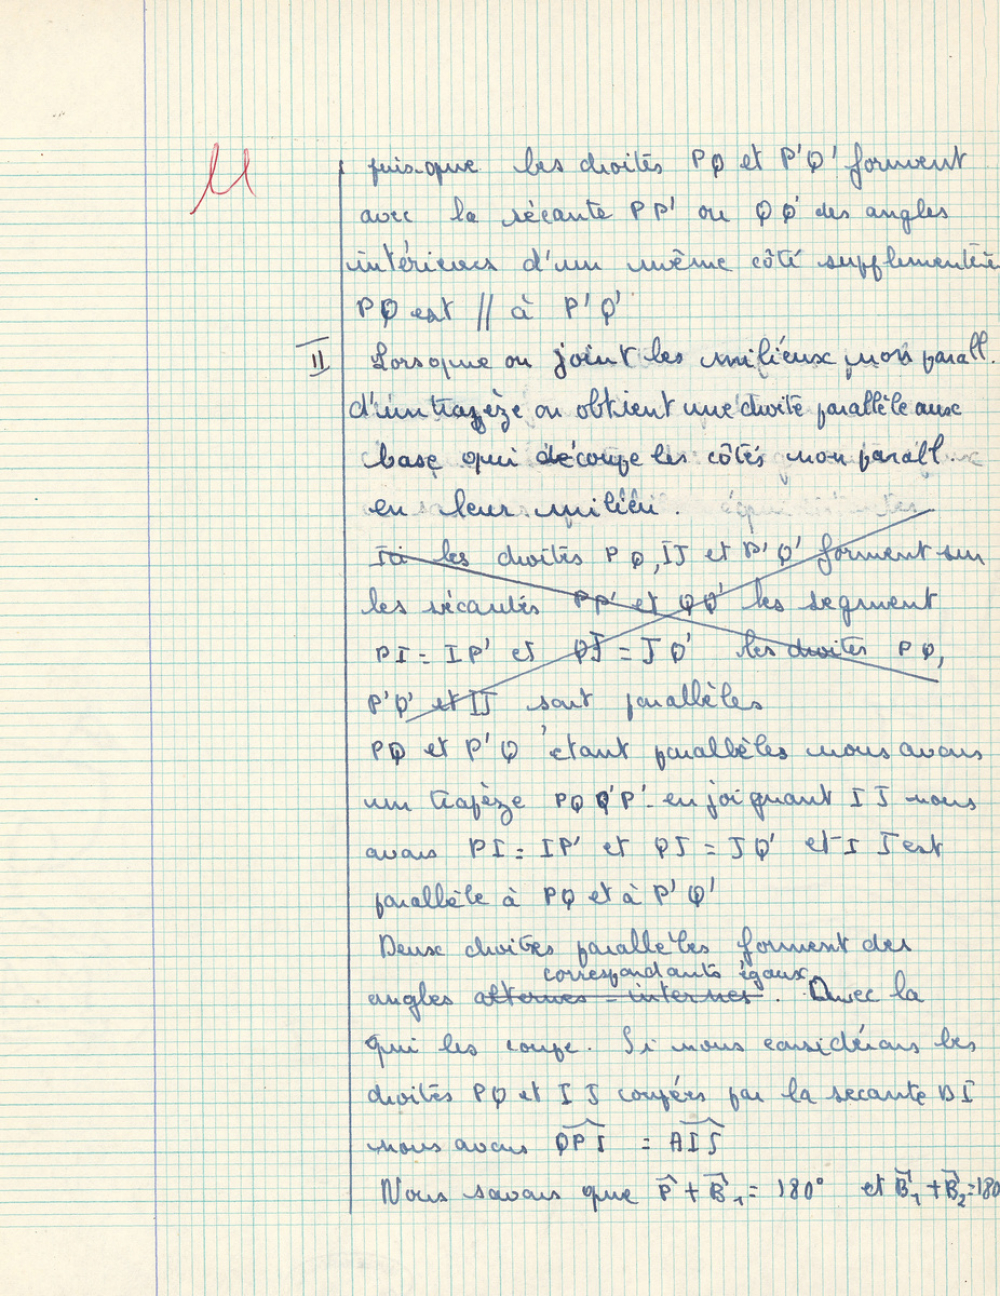 puisque les droites PQ et P'Q' forment
avec la sécante PP' ou QQ' des angles
intérieurs d'un même côté supplementaire
PQ est // à P'Q'
II Lorsque on joint les milieux non parall.
d'un trapèze on obtient une droite parallèle aux
base qui découpe les côtés non parall.
en leur milieu.
Ici les droites PQ, IJ et P'Q' forment sur
les sécantes PP' et QQ' les segment
PI = IP' et QJ = JQ' les droites PQ,
P'Q' et IJ sont parallèles
PQ et P'Q étant parallèles nous avons
un trapèze PQQ'P'. en joignant IJ nous
avons PI = IP' et QJ = JQ' et IJ est
parallèle à PQ et à P'Q'
Deux droites parallèles forment des
correspondants égaux
angles alternes-internes. Avec la
qui les coupe. Si nous considérons les
droites PQ et IJ coupées par la secante BI
nous avons QPI = AIJ
Nous savons que P + B1 = 180° et B1 + B2 = 180